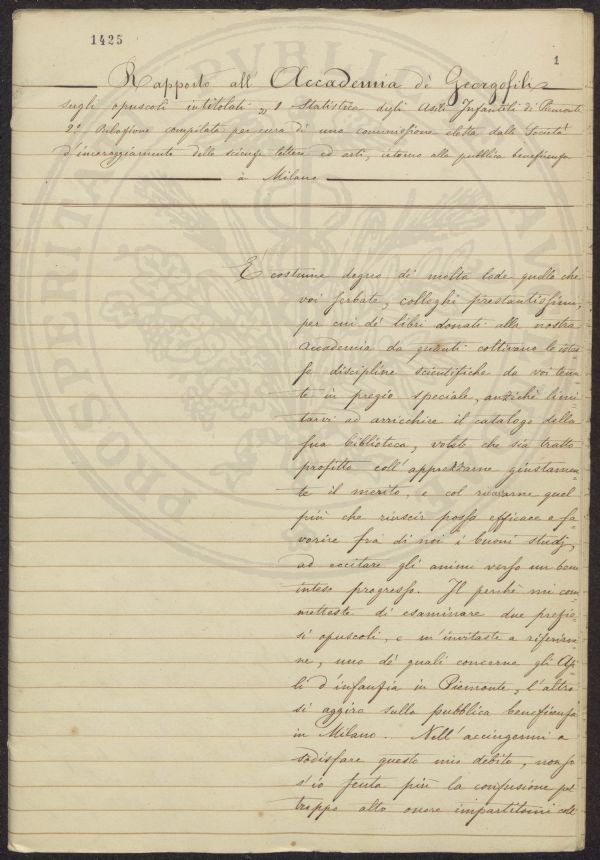 1425
1
Rapporto all' Accademia de' Georgofili
sugli opuscoli intitolati „ 1 Statistica degli Asili Infantili di Piemonte
2.° Relazione compilata per cura di una commissione eletta dalla Società
d'incoraggiamento delle scienze lettere ed arti, intorno alla pubblica beneficenza
a Milano
È costume degno di molta lode quello che
voi serbate, colleghi prestantissimi,
per cui de' libri donati alla nostra
Accademia da quanti coltivano le istes=
se discipline scientifiche da voi tenu=
te in pregio speciale, anzichè limi=
tarvi ad arricchire il catalogo della
sua biblioteca, volete che sia tratto
profitto coll' apprezzarne giustamen=
te il merito, e col ricavarne quel
più che riuscir possa efficace a fa=
vorire fra di noi i buoni studj,
ad eccitare gli animi verso un ben
inteso progresso. Il perchè mi com
metteste di esaminare due prezio=
si opuscoli, e m'invitaste a riferirve=
ne, uno de' quali concerne gli Asi=
li d'infanzia in Piemonte, l'altro
si aggira sulla pubblica beneficenza
in Milano. Nell' accingermi a
sodisfare questo mio debito, non so
s'io senta più la confusione pel
troppo alto onore impartitomi coll
PROSPERITA
PVBLICA